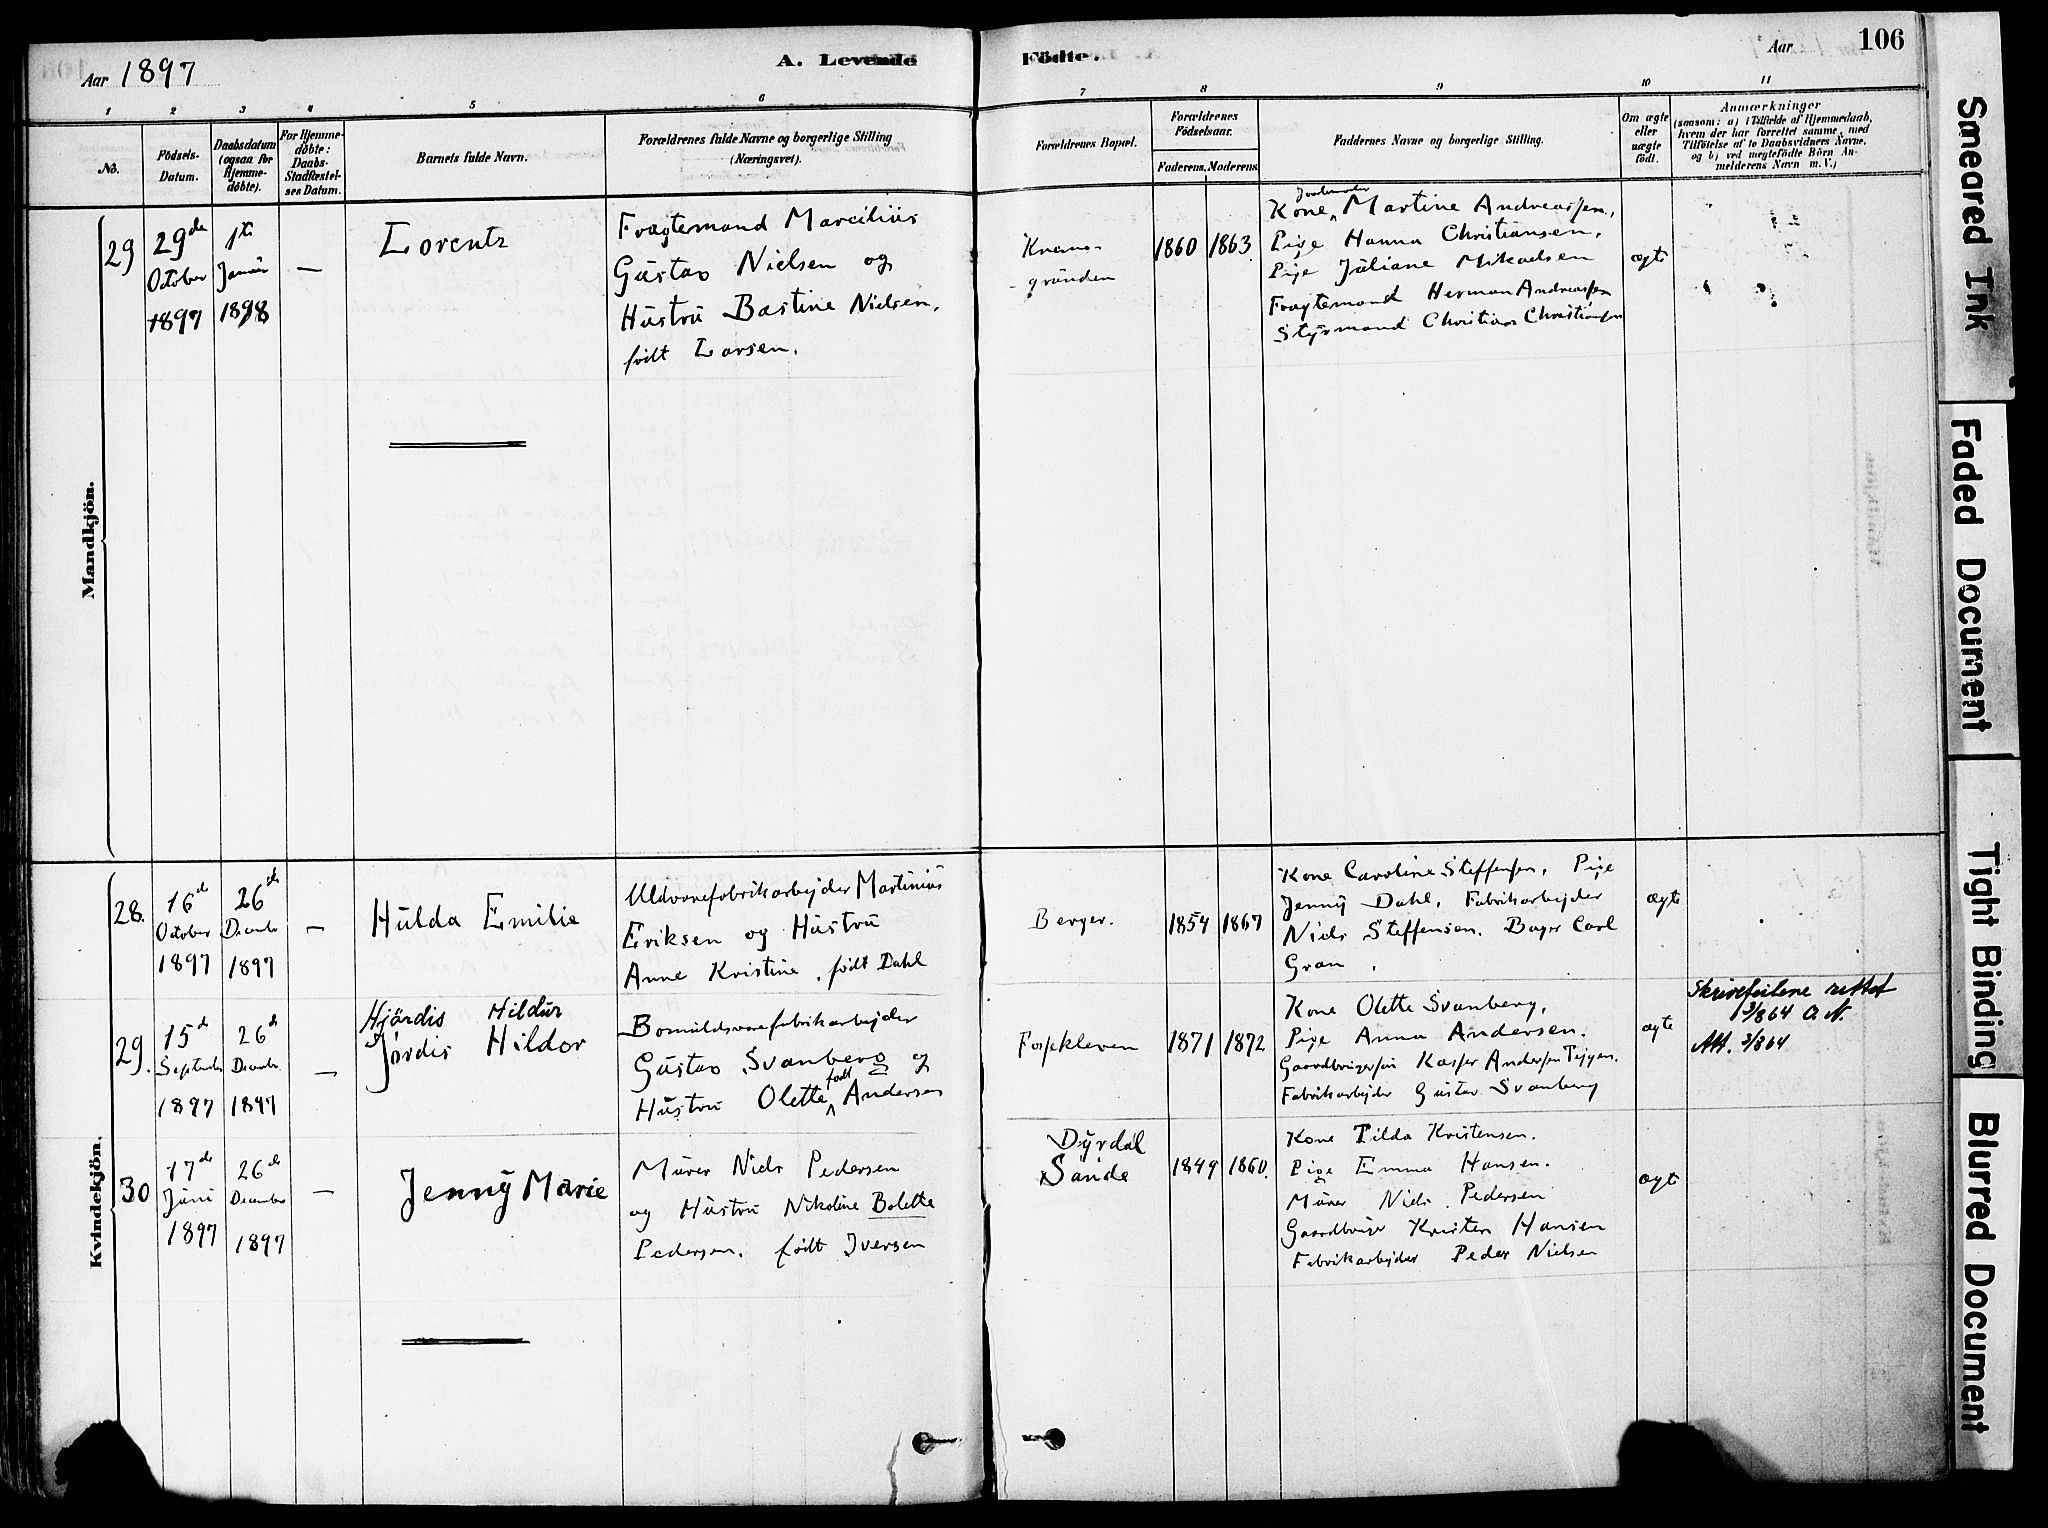 Aar 1897
A. Levende Födte.
Aar
106
1 2 3 4 5 6 7 8 9 10 11
No.
Födsels-Datum.
Daabsdatum (ogsaa for Hjemme-döbte).
For Hjemme-döbte: Daabs-Stadfæstel-ses Datum.
Barnets fulde Navn.
Forældrenes fulde Navne og borgerlige Stilling
(Næringsvei).
Forældrenes Bopæl.
Forældrenes Födselsaar.
Faderens. Moderens.
Faddernes Navne og borgerlige Stilling.
Om ægte eller uægte födt.
Anmærkninger
(saasom: a) i Tilfælde af Hjemmedaab,
hvem der har forrettet samme, med
Tilföielse af to Daabsvidners Navne,
og b) ved uegtefödte Börn An-
melderens Navn m.V.)
Mandkjön.
29
29de October 1897
1ste Januar 1898
—
Lorentz
Fragtemand Marcilius
Gustav Nielsen og
Hustru Bastine Nielsen,
født Larsen.
gründen
1860 1863.
Kone, Jordemoder Martine Andreassen,
Pige Hanna Christiansen,
Pige Juliane Mikaelsen
Fragtemand Herman Andreassen
Styrmand Christian Christiansen
ægte
Kvindekjön.
28.
16de October 1897
26de December 1897
—
Hulda Emilie
Uldvarefabrikarbejder Martinius
Eriksen og Hustru
Anne Kristine, født Dahl
Berger.
1854 1867
Kone Caroline Steffensen, Pige
Jenny Dahl, Fabrikarbejder
Niels Steffensen. Bager Carl
Gran.
ægte
29.
15de September 1897
26de December 1897
—
Hjördis Hildur
Hjørdis Hildor
Bomuldsvarefabrikarbejder
Gustav Svanberg og
Hustru Olette født Andersen
Fosskleven
1871 1872
Kone Olette Svanberg,
Pige Anna Andersen.
Gaardbrugersøn Kasper Andersen Teigen.
Fabrikarbejder Gustav Svanberg
ægte
Skrivefeilene rettet
3/864 A.N.
Att. 3/864
30
17de Juni 1897
26de December 1897
—
Jenny Marie
Murer Niels Pedersen
og Hustru Nikoline Bolette
Pedersen, født Iversen
Dyrdal
Sande
1849 1860.
Kone Tilda Kristensen.
Pige Emma Hansen.
Murer Niels Pedersen
Gaardbruger Kristen Hansen
Fabrikarbejder Peder Nielsen
ægte
Smeared Ink
Faded Document
Tight Binding
Blurred Document